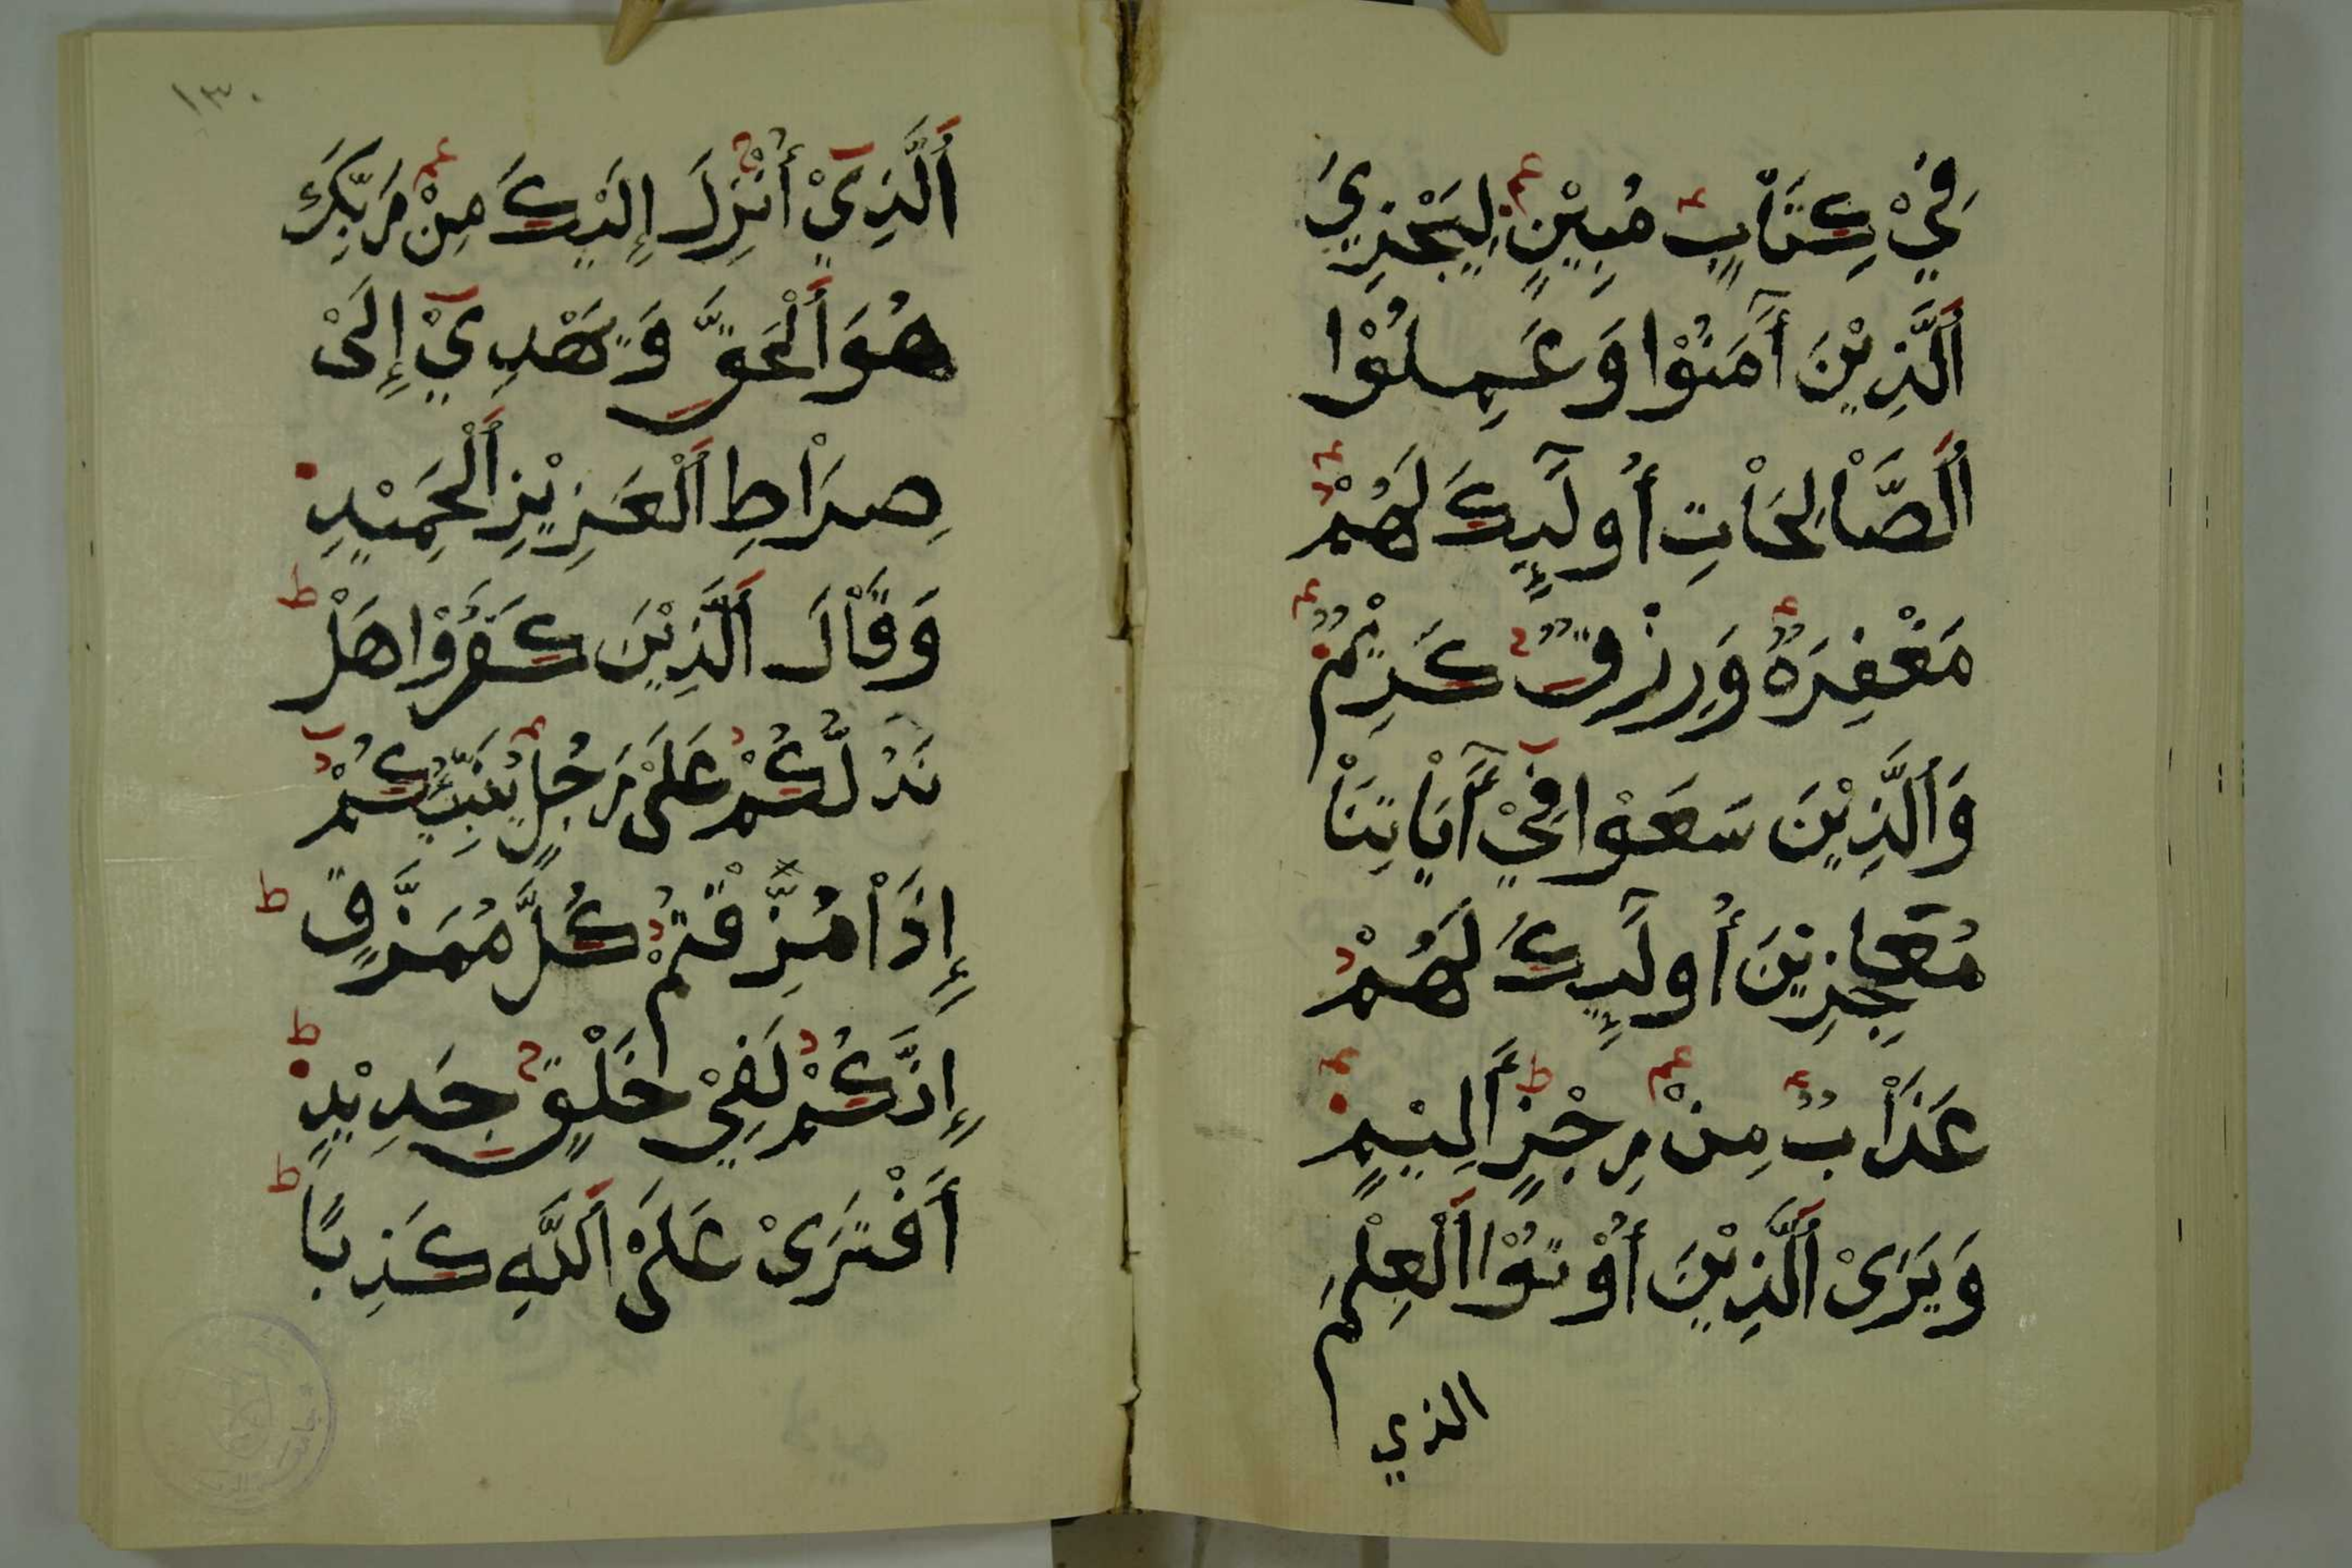 فِيْ كِتَاْبٍ مُبِيْنٍ لِيَجْزِيَ
اَلَّذِيْنَ آمَنُوْا وَعَمِلُوْا
اَلصَّاْلِحَاْتِ أُولَٓئِكَ لَهُمْ
مَغْفِرَةٌ وَرِزْقٌ كَرِيْمٌ
وَاَلَّذِيْنَ سَعَوْا فِيْ آيَاْتِنَاْ
مُعَاجِزِيْنَ أُولَٓئِكَ لَهُمْ
عَذَاْبٌ مِنْ رِجْزٍ أَلِيْمٍ
وَيَرَىْ اَلَّذِيْنَ أُوْتُوْا اَلْعِلْمَ
الذي
١٣٠
اَلَّذِيْ أُنْزِلَ إِلَيْكَ مِنْ رَبِّكَ
هُوَ اَلْحَقَّ وَيَهْدِيْ إِلَىْ
صِرَاْطِ اَلْعَزِيْزِ اَلْحَمِيْدِ
وَقَاْلَ اَلَّذِيْنَ كَفَرُوْا هَلْ
نَدُلُّكُمْ عَلَىْ رَجُلٍ يُنَبِّئُكُمْ
إِذَاْ مُزِّقْتُمْ كُلَّ مُمَزَّقٍ
إِنَّكُمْ لَفِيْ خَلْقٍ جَدِيْدٍ
أَفْتَرَىْ عَلَىْ اَللَّهِ كَذِبًا